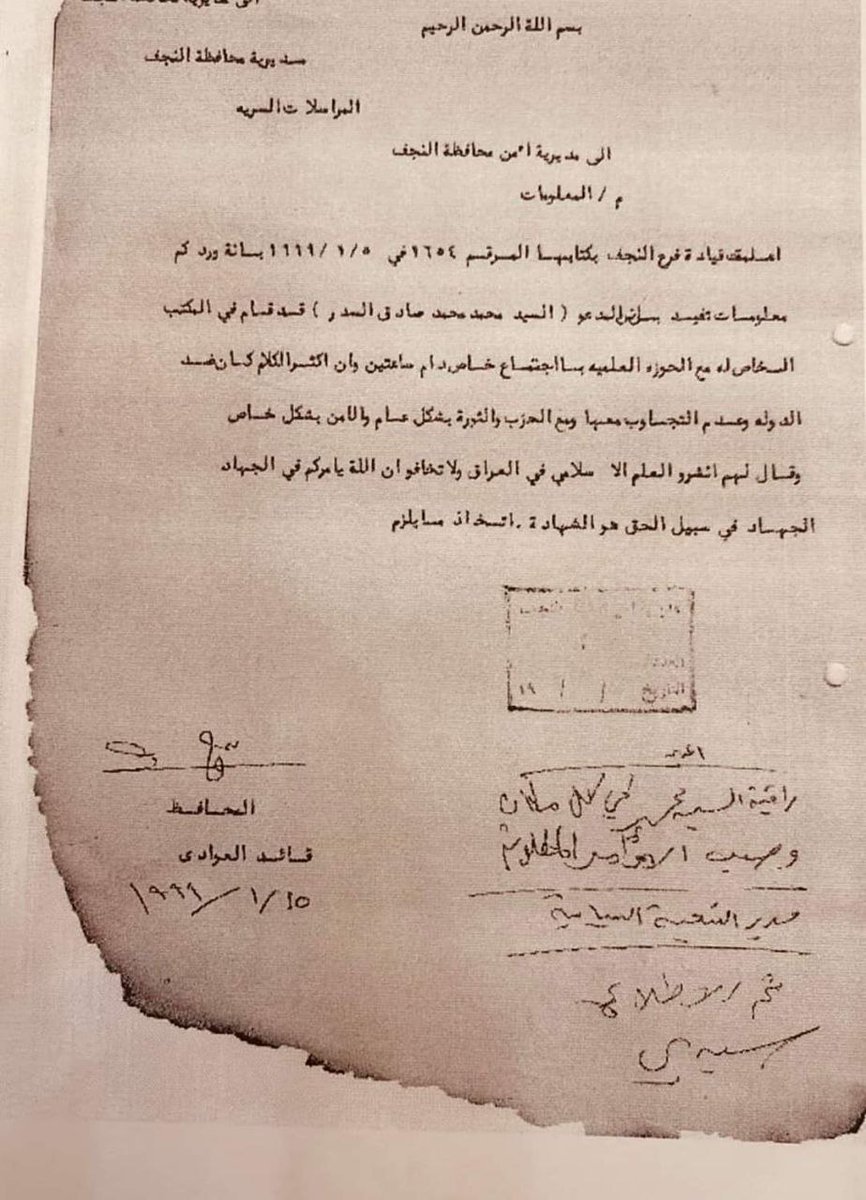 بسم اللة الرحمن الرحيم
مديرية محافظة النجف
المراسلات السريه
الى مديرية أمن محافظة النجف
م / المعلومات
قيادة فرع النجف بكتابهسا المرقسم ١٦٥٤ في ١/٥/ ١٩٩٩ بسانة وردكم
معلومسات تفيسد المدعو ( السيد محمد محمد صادق الصدر ) قسد قسام في المكتب
السخاص له مع الحوزه العلميه بسا اجتمساع خساص دام ساعتين وان اكثسر الكلام كسان ضسد
الدوله وعسدم التجساوب معهسا ومع الحزب والثورة بشكل عسام والامن بشكل خساص
وقسال لهم انشرو العلم الا سلامي في العراق ولا تخافو ان اللة يامركم في الجهاد
الجهساد في سبيل الحق هو الشهادة . اتسخاذ مسايلزم
التاريخ / / ١٩
السيد محمد في كل مكان
المحافسظ
وحسب الاوامر
قسائد العوادى
١٥/ ١/ ١٩٩٩
مدير الشعبة السياسية